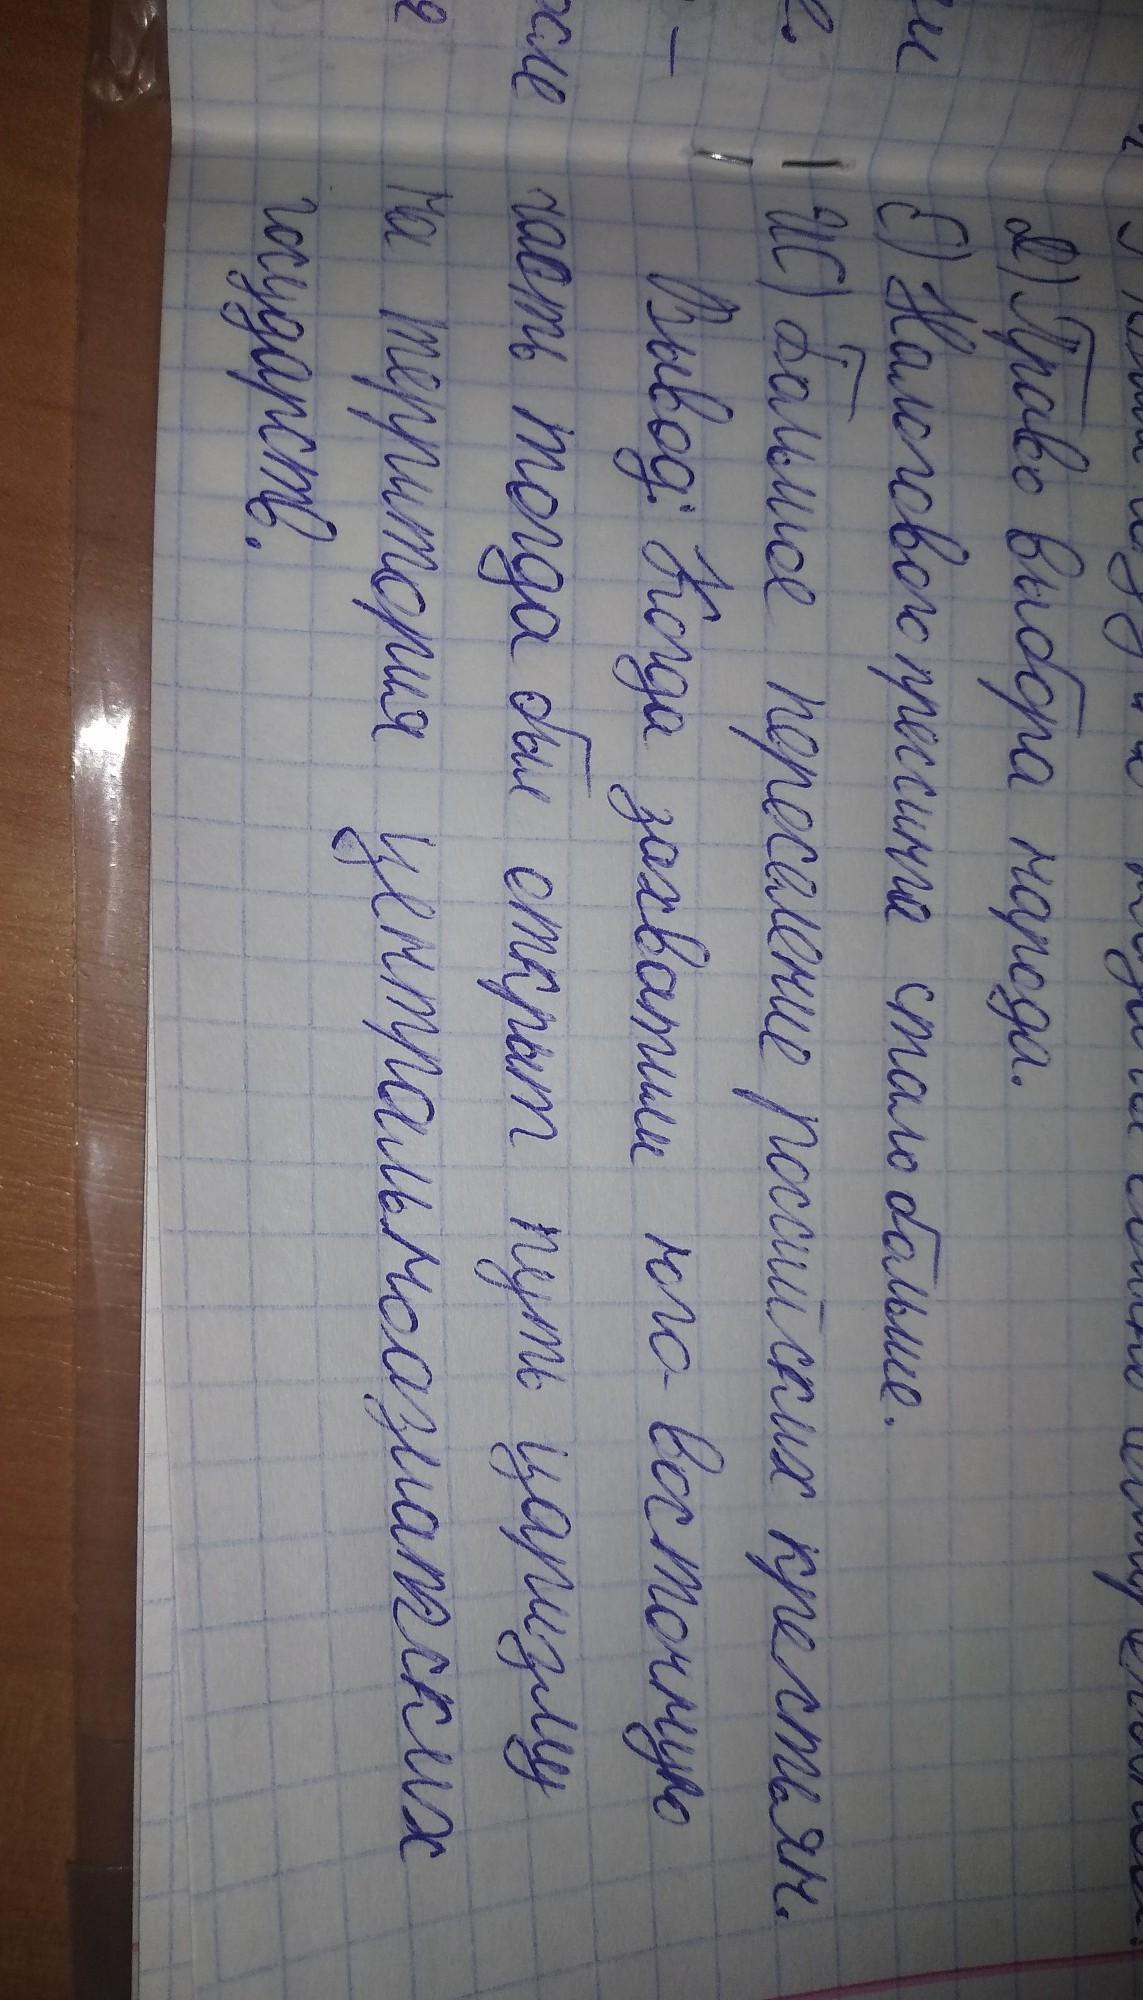 2) Право выбора народа.
С) Налогового прессинга стало больше.
ИС) Большое переселение российских крестьян.
Вывод: Когда захватили юго-восточную
часть тогда был открыт путь царизму
на территория центральноазиатских
государств.